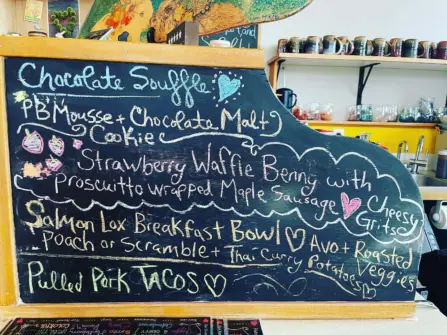 Chocolate Souffle
PB Mousse + Chocolate Malt
Cookie
Strawberry Waffle Benny with
Proscuitto wrapped Maple Sausage
Cheesy
Gritsc
Salmon Lox Breakfast Bowl Avo + Roasted
Veggies
Poach or Scramble + Thai Curry Potatoes
Pulled Pork TACOS